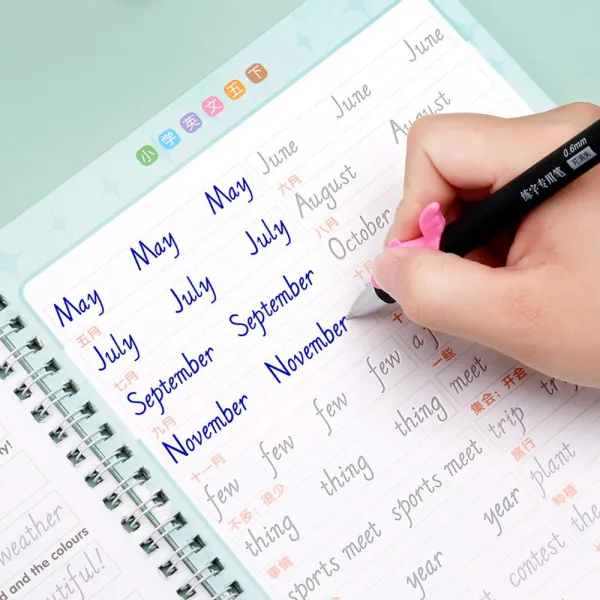 小学英文五下
May May May June June June
五月 六月
July July July August August August
七月 八月
September September October
九月 十月
November November
十一月
few few few few a f
不多；很少 一些
thing thing thing meet
事情 集会；开会
sports meet sports meet trip trip
旅行
year year plant
种植
contest the
练字专用笔 0.6mm
y!
weather
d and the colours
utiful!